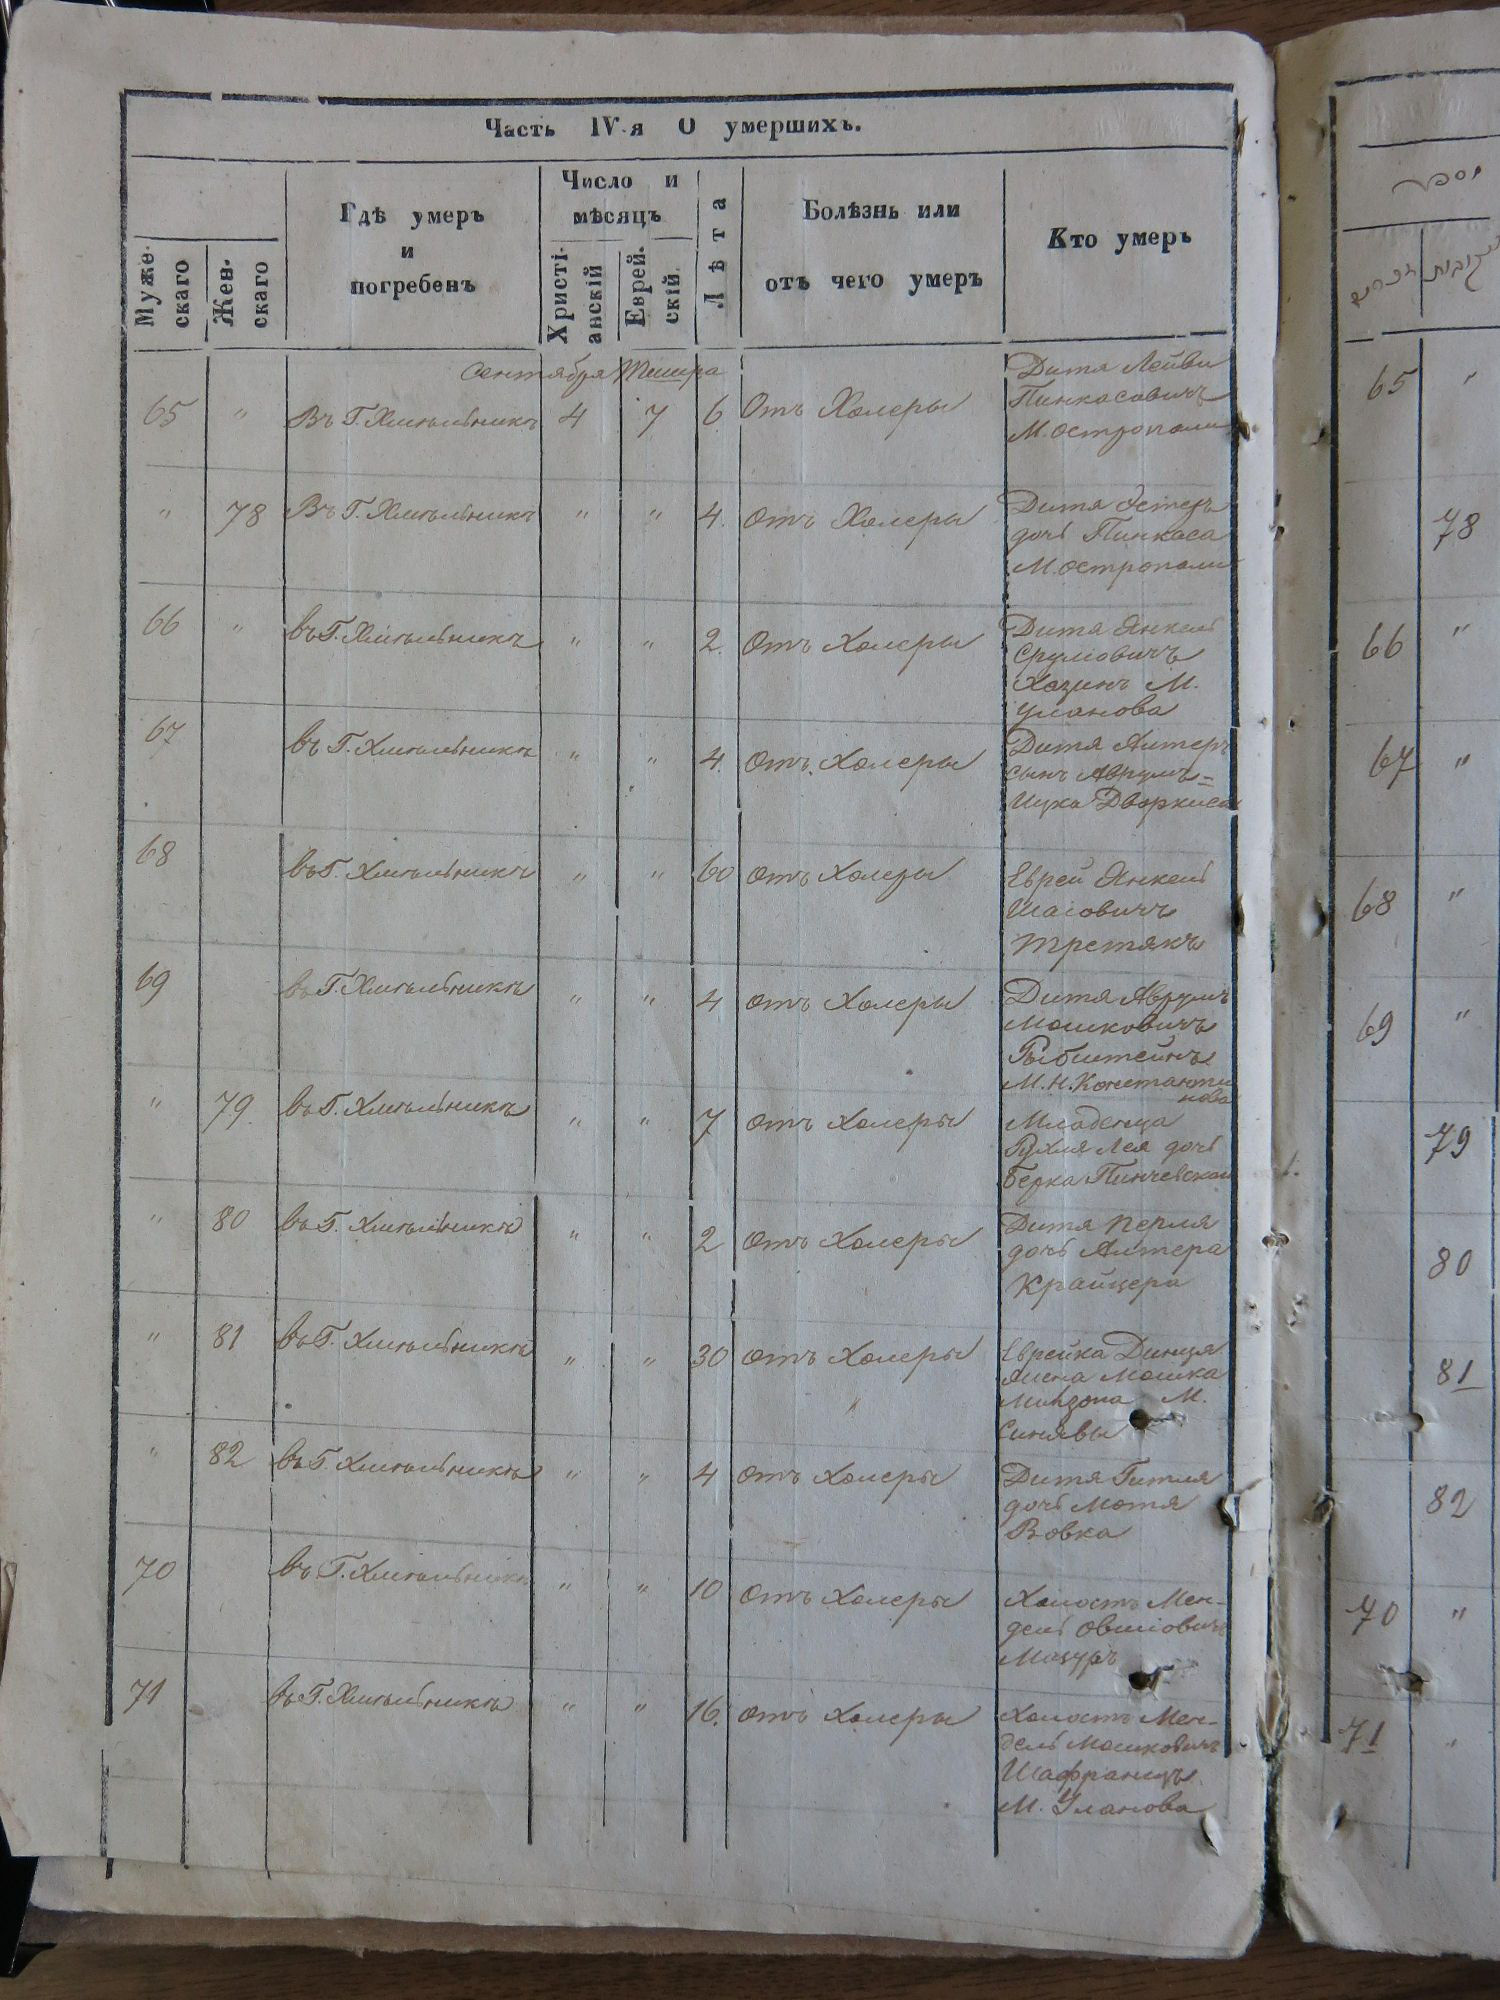 Часть IV-я О умершихъ.
Муже-
скаго
Жен-
скаго
Гдѣ умеръ
и
погребенъ
Число и
мѣсяцъ
Христі-
анскій
Еврей-
скій
Лѣта
Болѣзнь или
отъ чего умеръ
Кто умеръ
Сентября Тишра
65 " Въ Г. Хмѣльникѣ 4 7 6 Отъ Холеры
Дитя Лейви
Пинкасовичъ
М. Острополи
" 78 Въ Г. Хмѣльникѣ " " 4. Отъ Холеры
Дитя Эстеръ
дочь Пинкаса
М. Острополи
66 " въ Г. Хмѣльникѣ " " 2. Отъ Холеры
Дитя Янкель
Срулiовичъ
Хазинъ М.
Уланова
67 въ Г. Хмѣльникѣ " " 4. Отъ Холеры
Дитя Алтеръ
сынъ Аврумъ=
Ицка Дворкиса
68 въ Г. Хмѣльникѣ " " 60 Отъ Холеры
Еврей Янкель
Третякъ
69 въ Г. Хмѣльникѣ " " 4 Отъ Холеры
Дитя Аврумъ
Мошковичъ
М. Н. Константи
нова
" 79 въ Г. Хмѣльникѣ " " 7 Отъ Холеры
Младенца
Рухля Лея дочь
Берка Пинчевскаго
" 80 въ Г. Хмѣльникѣ " " 2 Отъ Холеры
Дитя Перля
дочь Алтера
Крайцера
" 81 въ Г. Хмѣльникѣ " " 30 Отъ Холеры
Еврейка
жена Мошка
М.
Синявы
" 82 въ Г. Хмѣльникѣ " " 4 Отъ Холеры
Дитя Гитля
дочь Мотя
Вовка
70 въ Г. Хмѣльникѣ " " 10 Отъ Холеры
Холостъ Мен-
дель
Мазуръ
71 въ Г. Хмѣльникѣ " " 16. Отъ Холеры
Холостъ Мен-
дель Мошковичъ
Шафранецъ
М. Уланова
65 "
78
66 "
67 "
68 "
69 "
79
80
81
82
70 "
71 "